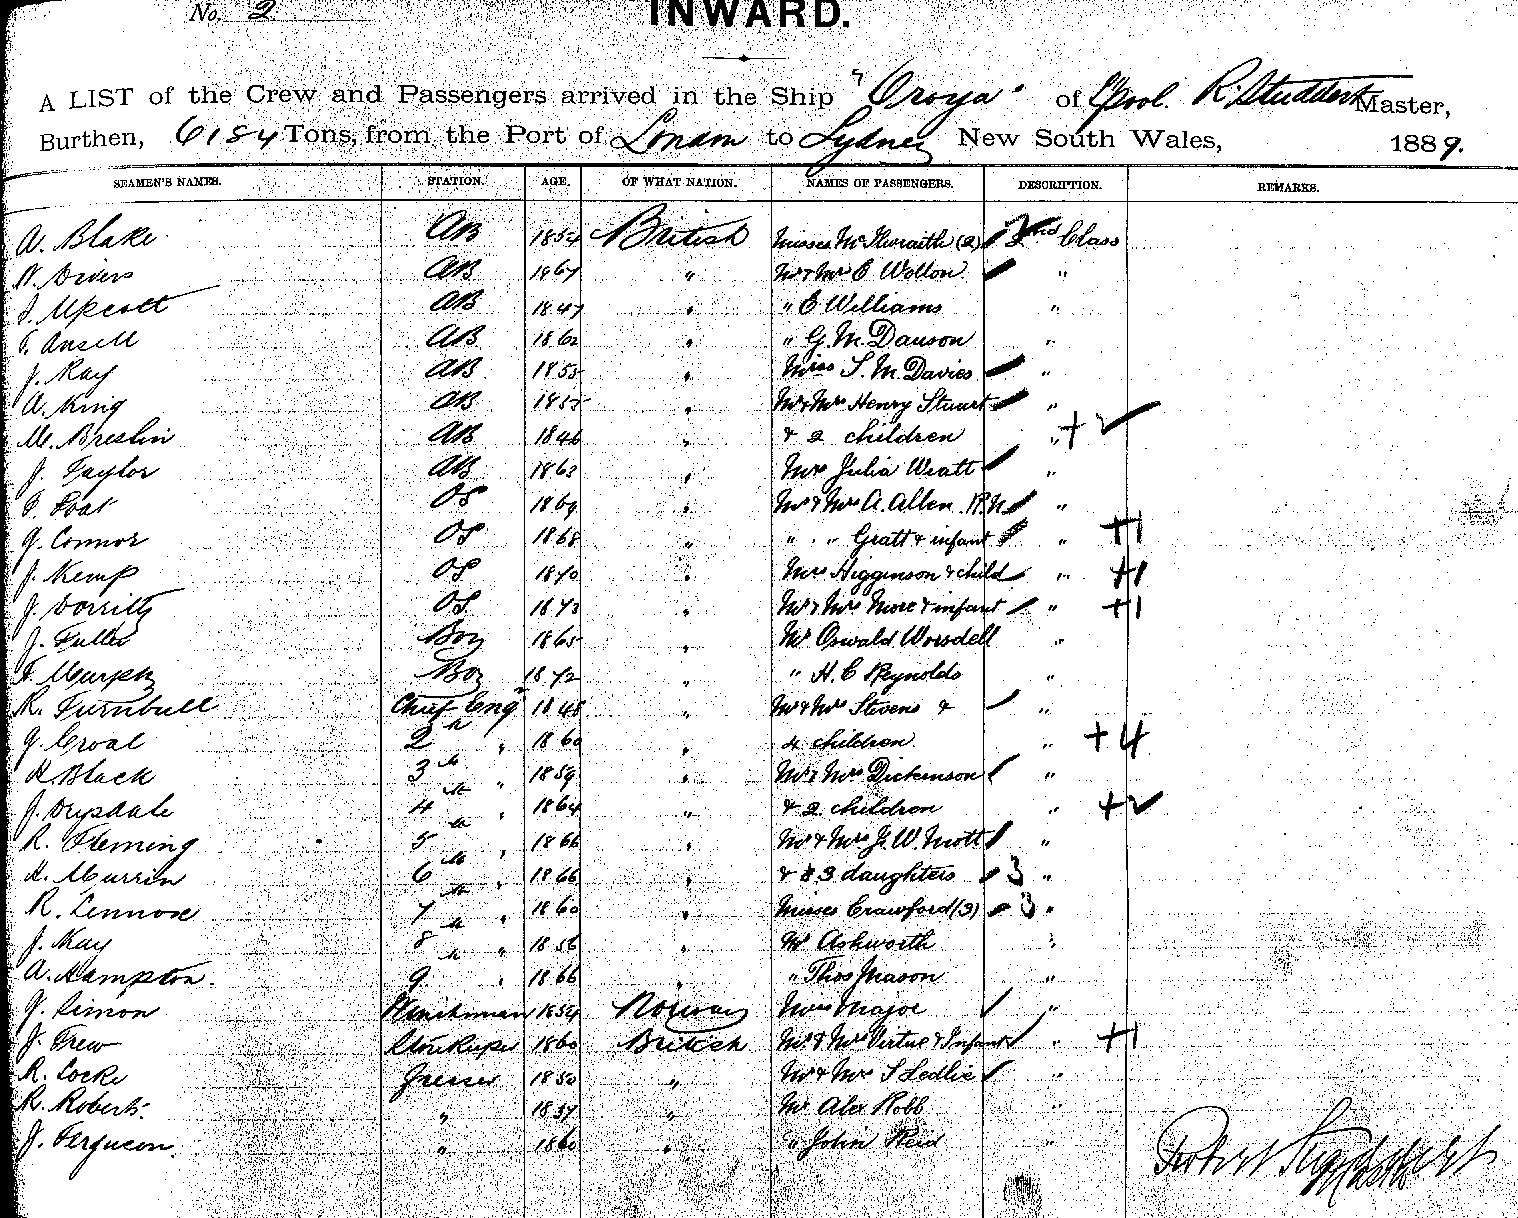 No. 2
INWARD.
A LIST of the Crew and Passengers arrived in the Ship "Oroya" of L'pool. R. Studdert Master,
Burthen, 6184 Tons, from the Port of London to Sydney New South Wales, 1889.
SEAMEN'S NAMES. STATION. AGE. OF WHAT NATION. NAMES OF PASSENGERS. DESCRIPTION. REMARKS.
A. Blake AB 1854 British Misses McIlwraith (2) 2nd Class
Divers AB 1867 " Mr & Mrs E Wollon "
Upcott AB 1847 " " E Williams "
Ansell AB 1862 " " G. M. Dawson "
J. Ray AB 1855 " Miss S. M. Davies "
A. King AB 1857 " Mr & Mrs Henry Stuart "
M. Breslin AB 1846 " & 2 children " + 2
J. Taylor AB 1863 " Mrs Julia Wratt "
OS 1869 " Mr & Mrs A. Allen R.N. "
G. Connor OS 1868 " " " Gratt & infant " +1
J. Kemp OS 1870 " Mrs Higginson & child " +1
J. Dorrilty OS 1873 " Mr & Mrs More & infant " +1
J. Fuller Boy 1865 " Mr Oswald Worsdell "
Murphy Boy 1872 " " H. C Reynolds "
R. Turnbull Chief Engr 1848 " Mr & Mrs Stevens & "
G. Croal 2 " 1860 " 4 children " +4
H Black 3 " 1859 " Mr & Mrs Dickinson "
J. Drysdale 4th " 1864 " & 2 children " +2
R. Fleming 5th " 1866 " Mr & Mrs J. W. Mott "
H. Murrin 6th " 1866 " & 3 daughters 3 "
R. Lennox 7th " 1860 " Misses Crawford (3) 3 "
J. Kay 8th " 1856 " Mr Ashworth "
A. Hampton. 9 " 1866 " " Thos Mason "
G. Simon Winchman 1854 Norway Mrs Major "
J. Frew Storekeeper 1860 British Mr & Mrs Virtue & Infant " +1
R. Locke Greaser 1850 " Mr & Mrs S Ledlie "
R. Roberts. " 1857 " Mr Alex Robb "
J. Ferguson. " 1860 " " John Reid "
Robert Studdert